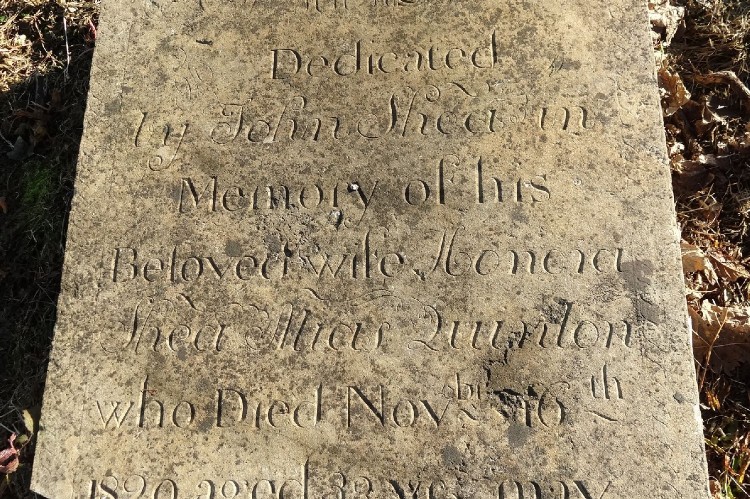 Dedicated
by John Shea in
Memory of his
Beloved wife Honora
Shea Alias Quinlon
who Died Novbr 16th
1820 aged 32 yrs may